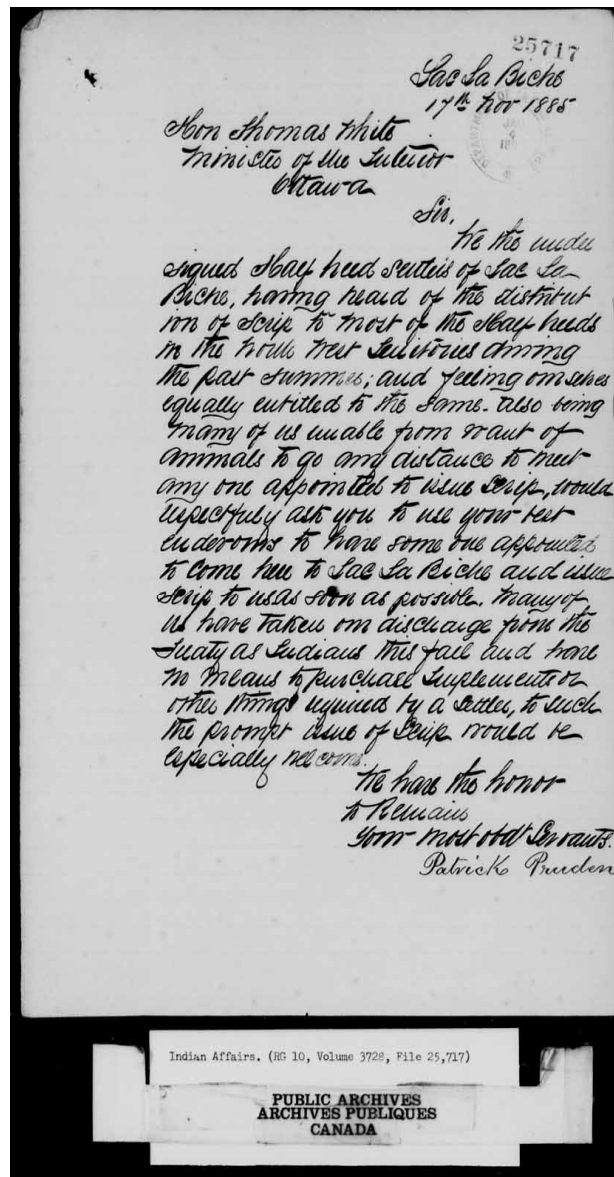 25717
Lac La Biche
17th Nov 1885
Hon Thomas White
Minister of the Interior
Ottawa
Sir,
We the under
signed Half breed settlers of Lac La
Biche, having heard of the distribut
ion of Scrip to most of the Half breeds
in the North West Territories during
the past summer; and feeling ourselves
equally entitled to the same. Also being
many of us unable from want of
animals to go any distance to meet
any one appointed to issue Scrip, would
respectfuly ask you to use your best
endevours to have some one appointed
to come here to Lac La Biche and issue
Scrip to us as soon as possible. Many of
us have taken our discharge from the
Treaty as Indians this fall and have
no means to purchase Implements or
other things required by a Settler, to such
the prompt issue of Scrip would be
especially welcome.
We have the honor
to Remain
Your most obdt Servants.
Patrick Pruden
Indian Affairs. (RG 10, Volume 3728, File 25,717)
PUBLIC ARCHIVES
ARCHIVES PUBLIQUES
CANADA